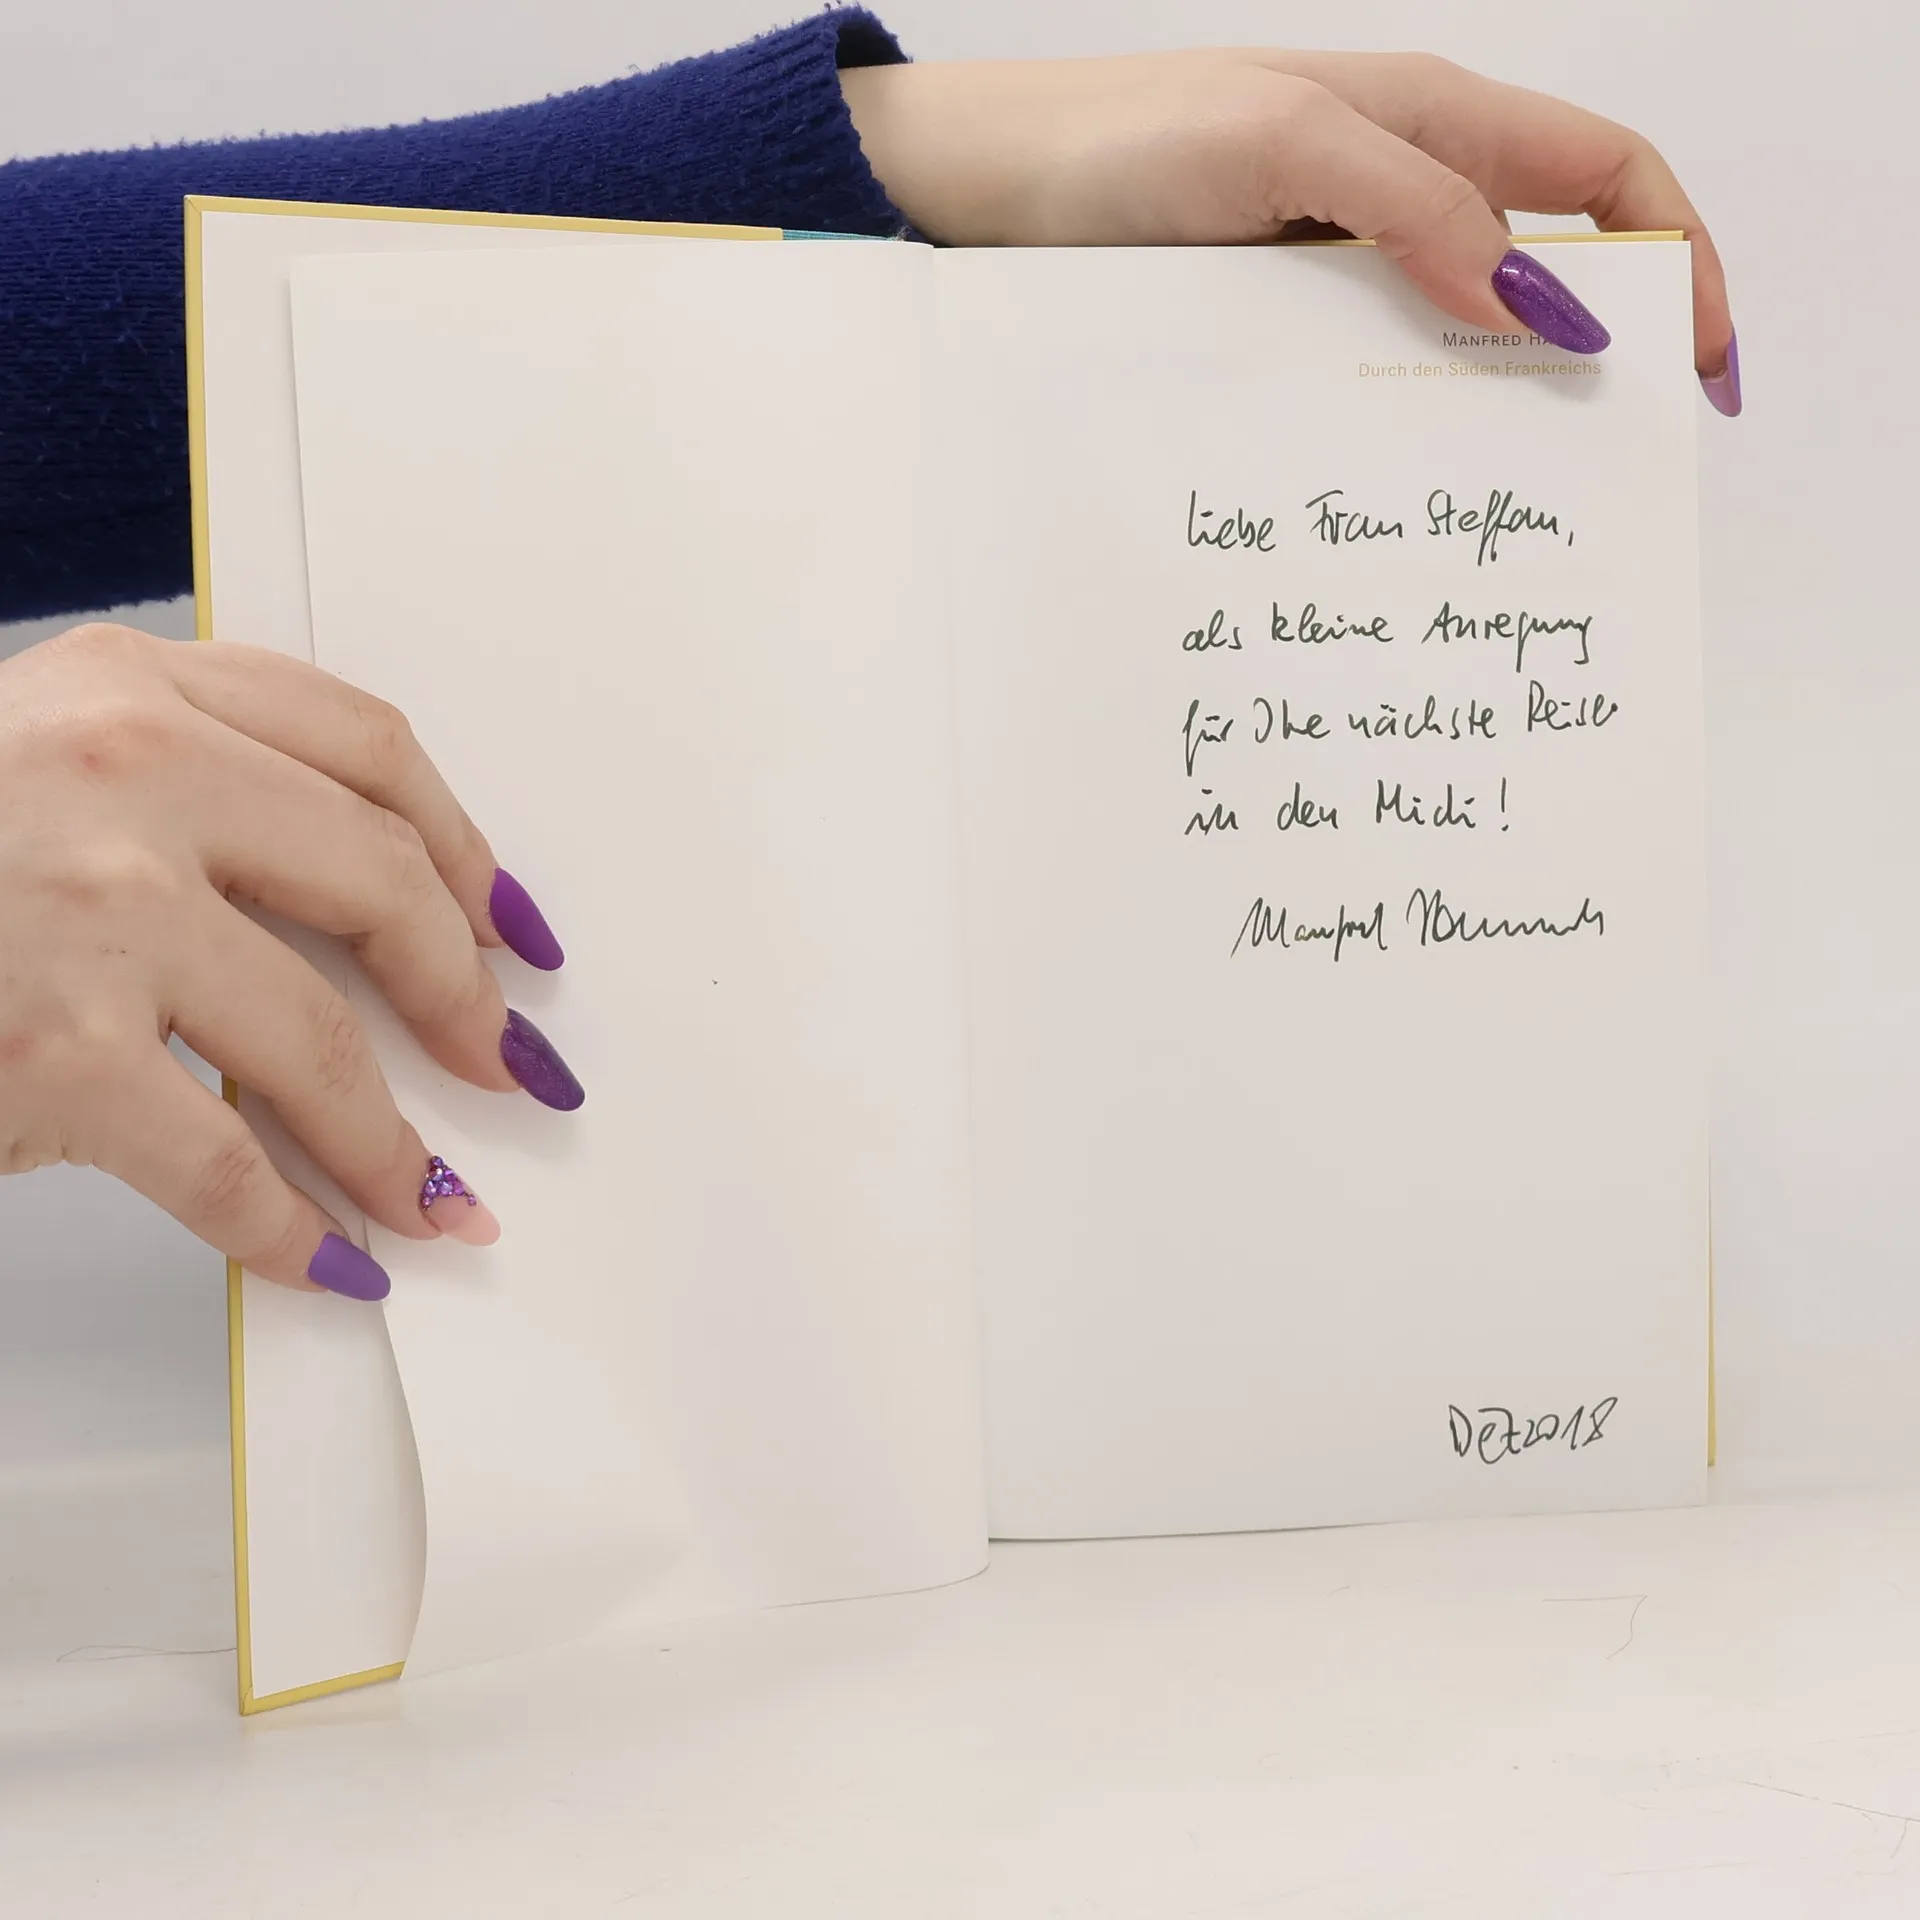 MANFRED HA
Durch den Süden Frankreichs
Liebe Frau Steffan,
als kleine Anregung
für Ihre nächste Reise
in den Midi!
Manfred
Dez 2018